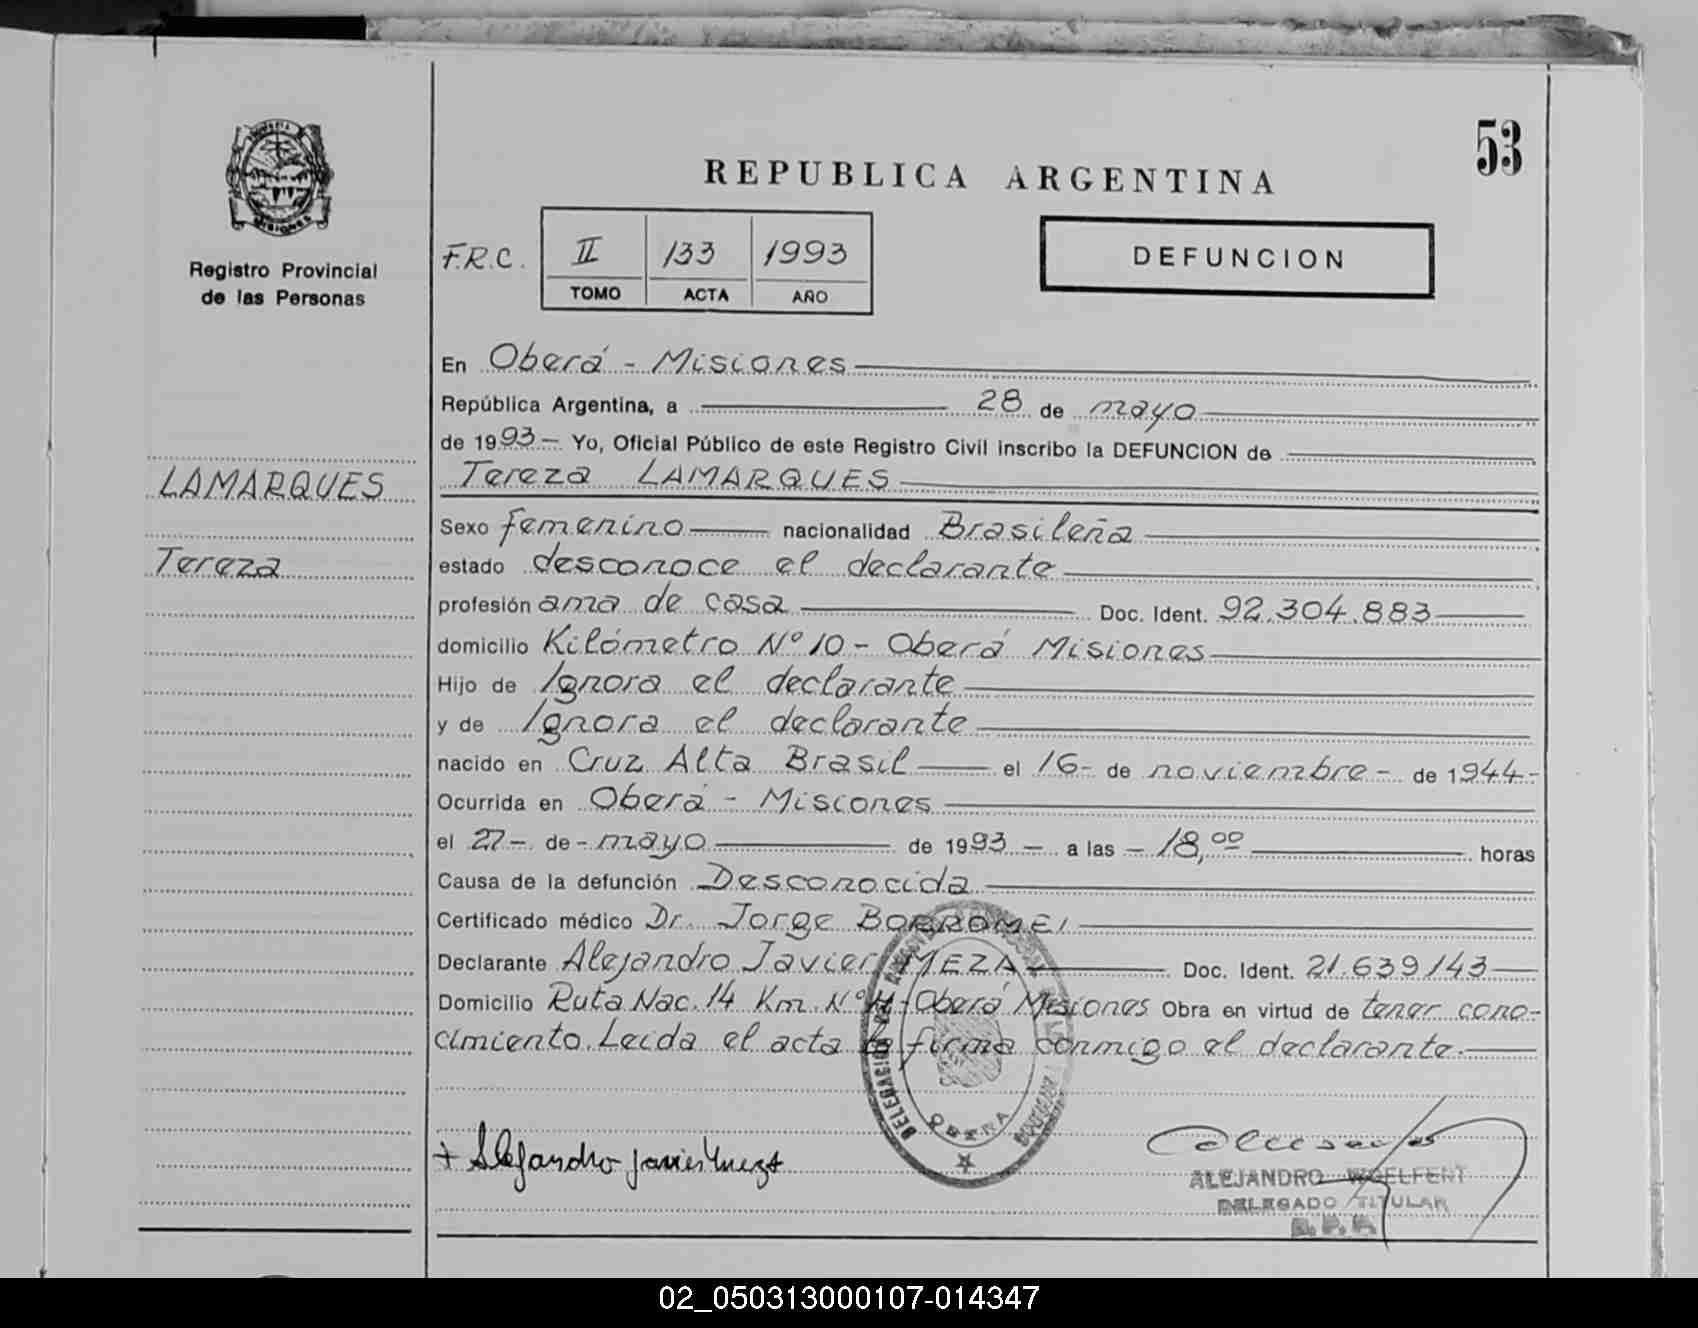 53
REPUBLICA ARGENTINA
MISIONES
Registro Provincial
de las Personas
F.R.C. II 133 1993
TOMO ACTA AÑO
DEFUNCION
En Oberá - Misiones
República Argentina, a 28 de mayo
de 1993 - Yo, Oficial Público de este Registro Civil inscribo la DEFUNCION de
LAMARQUES
Tereza LAMARQUES
Sexo femenino nacionalidad Brasileña
Tereza
estado desconoce el declarante
profesión ama de casa Doc. Ident. 92.304.883
domicilio Kilómetro Nº 10 - Oberá Misiones
Hijo de Ignora el declarante
y de Ignora el declarante
nacido en Cruz Alta Brasil el 16 - de noviembre - de 1944 -
Ocurrida en Oberá - Misiones
el 27 - de - mayo de 1993 - a las - 18,00 horas
Causa de la defunción Desconocida
Certificado médico Dr. Jorge BORROMEI
Declarante Alejandro Javier MEZA Doc. Ident. 21.639143
Domicilio Ruta Nac. 14 Km. Nº - Oberá Misiones Obra en virtud de tener cono-
cimiento. Leida el acta la firma conmigo el declarante.
DELEGACION
OBERA
+ Alejandro Javier Meza
ALEJANDRO WOELFERT
DELEGADO TITULAR
02_050313000107-014347